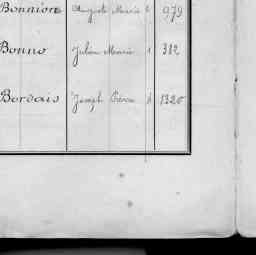 Bonnion Auguste Marie 6 979
Bonno Julien Marie 1 382
Bordais Joseph Pierre 6 1320